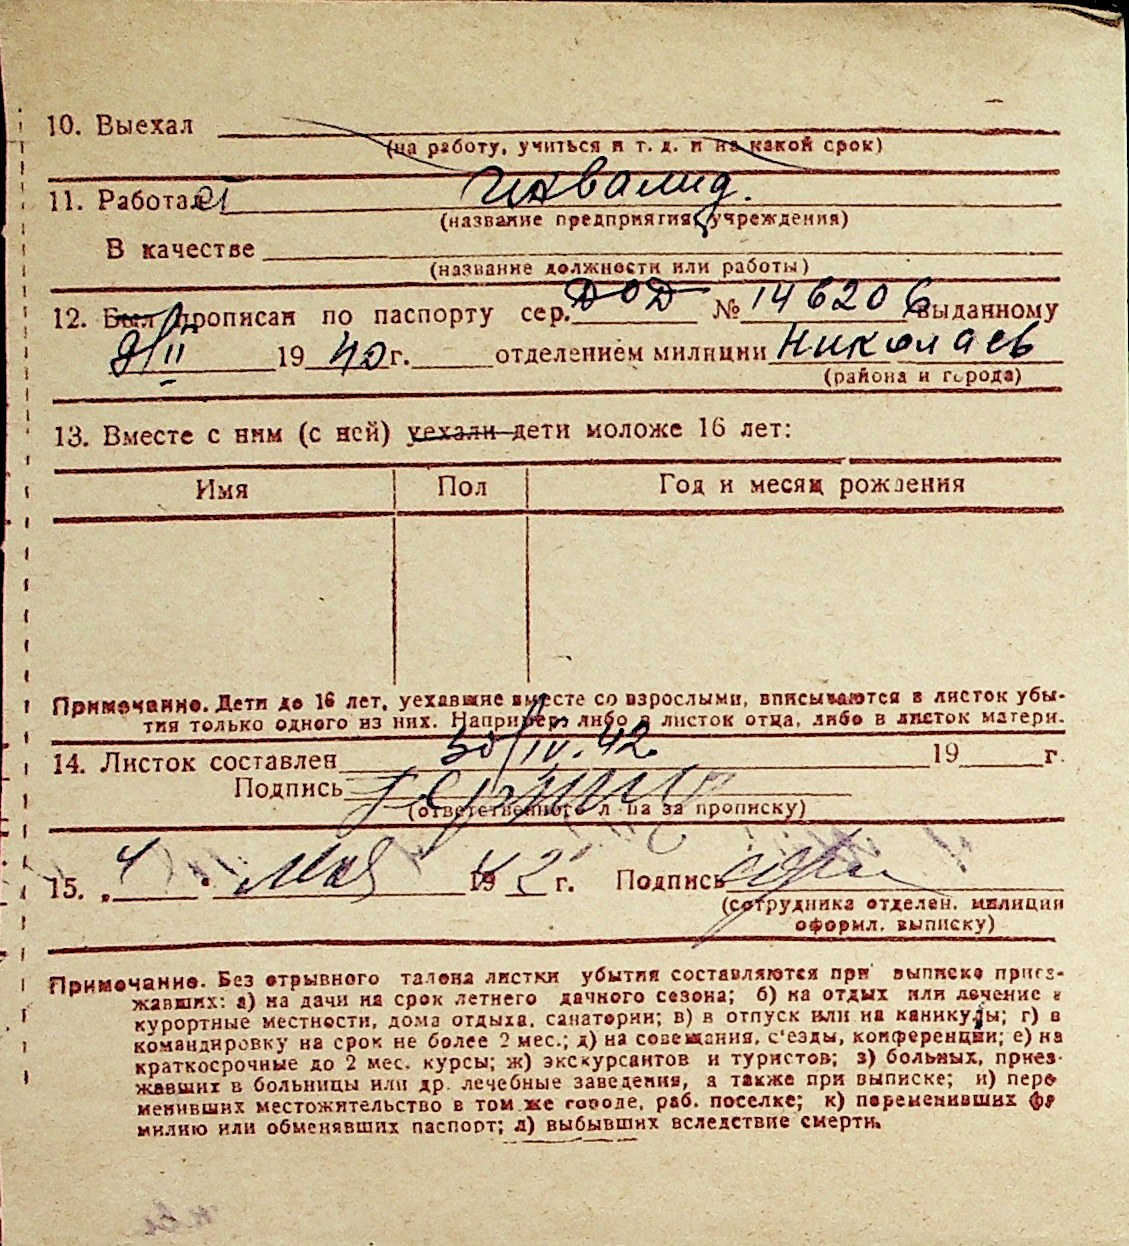 10. Выехал
(на работу, учиться и т. д. и на какой срок)
11. Работает инвалид.
(название предприятия, учреждения)
В качестве
(название должности или работы)
12. Был прописан по паспорту сер. ДОД № 146206 выданному
9/II 1940 г. отделением милиции Николаев
(района и города)
13. Вместе с ним (с ней) уехали дети моложе 16 лет:
Имя Пол Год и месяц рождения
Примечание. Дети до 16 лет, уехавшие вместе со взрослыми, вписываются в листок убы-
тия только одного из них. Например, либо в листок отца, либо в листок матери.
14. Листок составлен 30/IV. 42 19 г.
Подпись
(ответственного лица за прописку)
15. „4" мая 1942 г. Подпись
(сотрудника отделен. милиции
оформл. выписку)
Примечание. Без отрывного талона листки убытия составляются при выписке приез-
жавших: а) на дачи на срок летнего дачного сезона; б) на отдых или лечение в
курортные местности, дома отдыха, санатории; в) в отпуск или на каникулы; г) в
командировку на срок не более 2 мес.; д) на совещания, с'езды, конференции; е) на
краткосрочные до 2 мес. курсы; ж) экскурсантов и туристов; з) больных, приез-
жавших в больницы или др. лечебные заведения, а также при выписке; и) пере
менивших местожительство в том же городе, раб. поселке; к) переменивших фа
милию или обменявших паспорт; л) выбывших вследствие смерти.